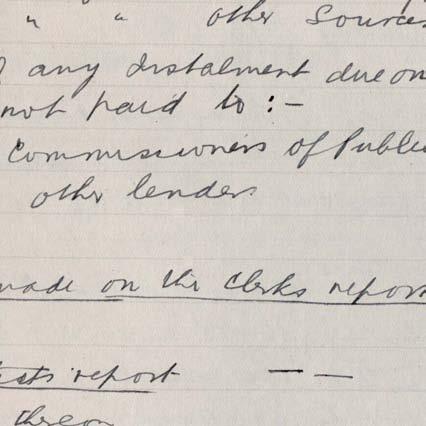 " " other Sources
any Instalment due on
not paid to :-
Commissioners of Public
other lenders
made on the Clerks report
report — —
thereon